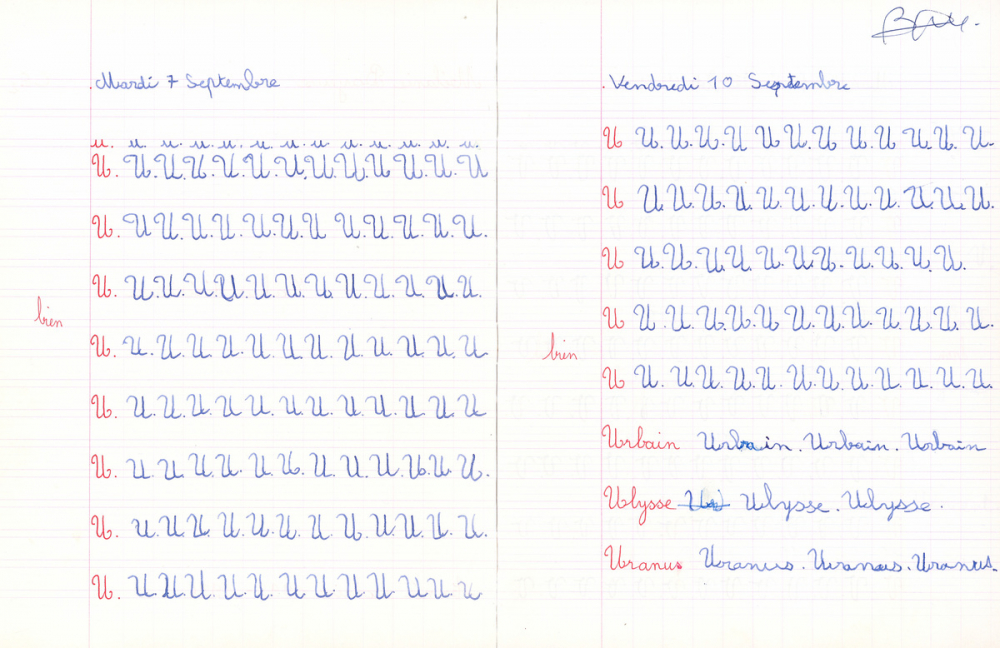 Mardi 7 Septembre
u. u. u. u. u. u. u. u. u. u. u. u. u.
U. U. U. U. U. U. U. U. U. U. U. U. U
U. U. U. U. U. U. U. U. U. U. U. U. U.
U. U. U. U. U. U. U. U. U. U. U. U. U.
bien
U. U. U. U. U. U. U. U. U. U. U. U. U
U. U. U. U. U. U. U. U. U. U. U. U. U
U. U. U. U. U. U. U. U. U. U. U. U. U.
U. U. U. U. U. U. U. U. U. U. U. U. U.
U. U. U. U. U. U. U. U. U. U. U. U. U
Vendredi 10 Septembre
U U. U. U. U U. U. U. U. U. U. U. U.
U U. U. U. U. U. U. U. U. U. U. U. U.
U U. U. U. U. U. U. U. U. U. U. U.
U U. U. U. U. U. U. U. U. U. U. U. U.
bien
U U. U. U. U. U. U. U. U. U. U. U. U.
Urbain Urbain. Urbain. Urbain
Ulysse Ulysse. Ulysse.
Uranus Uranus. Uranus. Uranus.